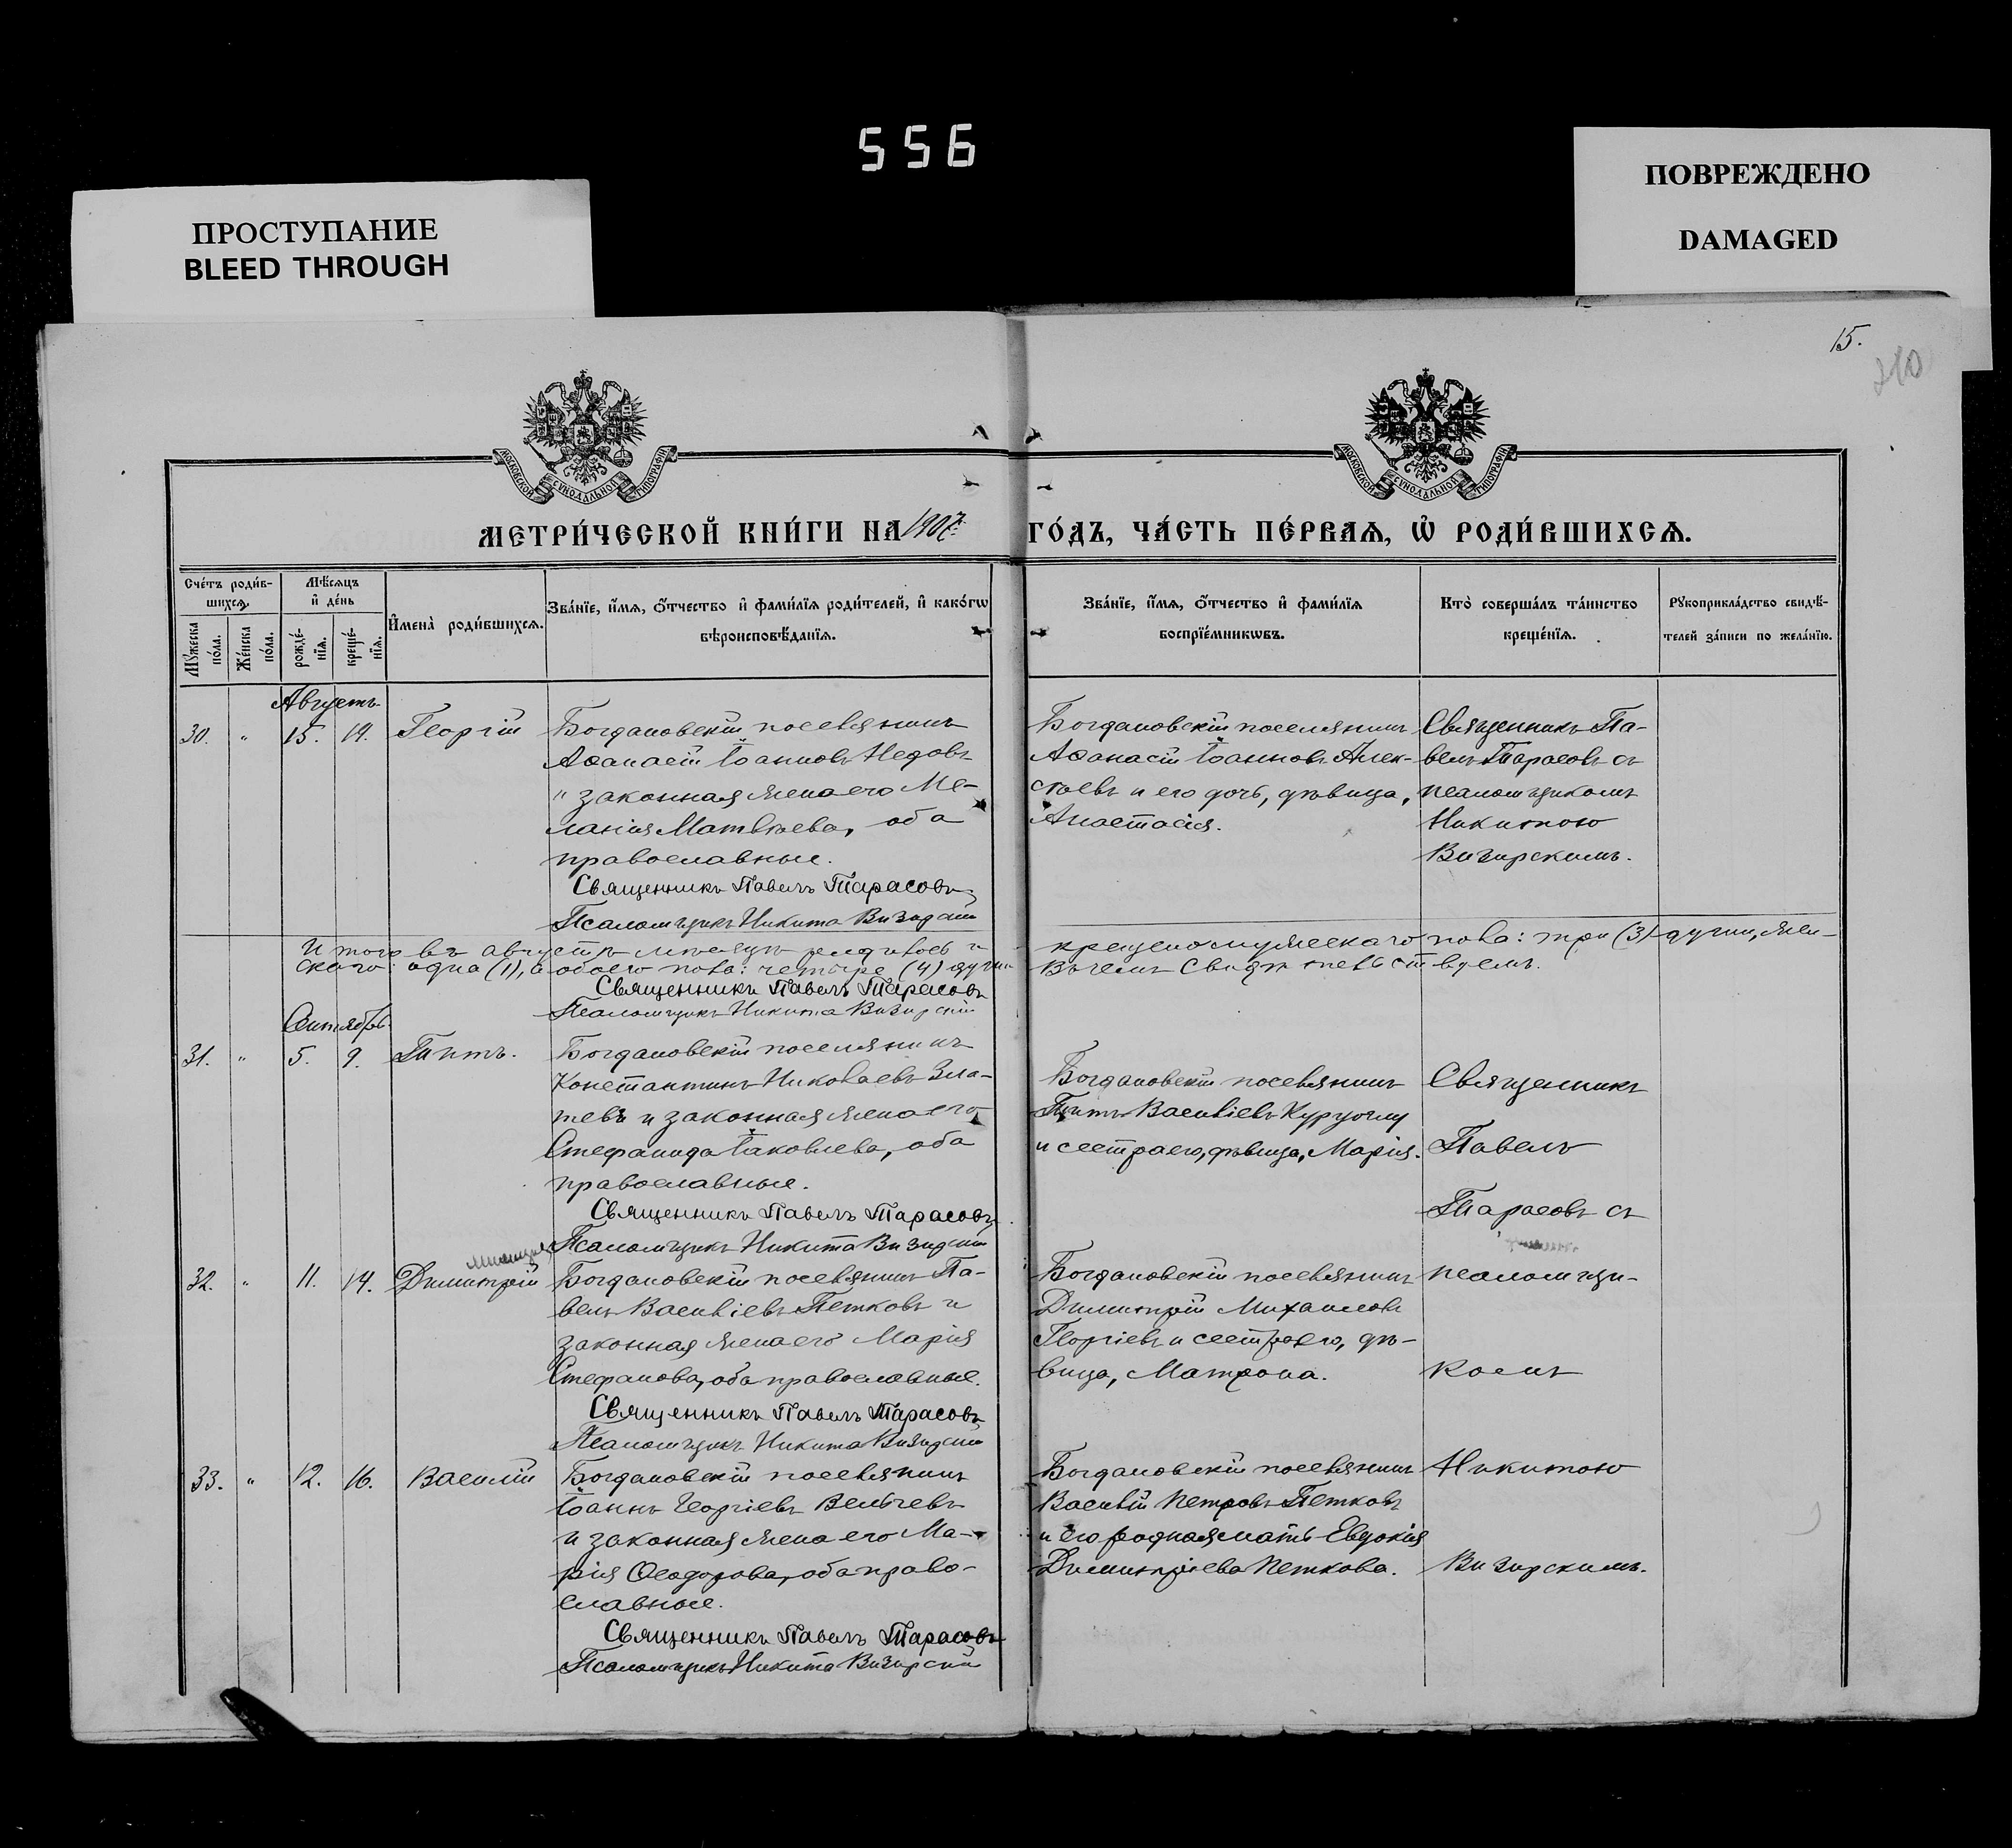 556
ПРОСТУПАНИЕ
BLEED THROUGH
ПОВРЕЖДЕНО
DAMAGED
15.
210
МОСКОВСКОЙ СѴНОДАЛЬНОЙ ТИПОГРАФІИ
МОСКОВСКОЙ СѴНОДАЛЬНОЙ ТИПОГРАФІИ
МЕТРИ́ЧЕСКОЙ КНИ́ГИ НА 1907 ГО́ДЪ, ЧА́СТЬ ПЕ́РВАѦ, Ѡ҆ РОДИ́ВШИХСѦ.
Сче́тъ роди́в-
шихсѧ.
Мѣ́сѧцъ
и҆ де́нь
Мꙋ́жеска по́ла.
Же́нска по́ла.
рожде́-
нїѧ.
креще́-
нїѧ.
И҆мена̀ роди́вшихсѧ.
Зва́нїе, и҆́мѧ, ѻ҆́тчество и҆ фами́лїѧ роди́телей, и҆ како́гѡ
вѣроисповѣ́данїѧ.
Зва́нїе, и҆́мѧ, ѻ҆́тчество и҆ фами́лїѧ
воспрїе́мникѡвъ.
Кто̀ соверша́лъ та́инство
креще́нїѧ.
Рꙋкоприкла́дство свидѣ́-
телей за́писи по жела́нїю.
Августъ
30. " 15. 19. Георгій
Богдановскій поселянинъ
Аѳанасій Іоанновъ Недовъ
и законная жена его Ме-
ланія Матвѣева, оба
православные.
Священникъ Павелъ Тарасовъ
Псаломщикъ Никита Визирскій
Богдановскій поселянинъ
Аѳанасій Іоанновъ Алек-
сѣевъ и его дочь, дѣвица,
Анастасія.
Священникъ Па-
велъ Тарасовъ съ
псаломщикомъ
Никитою
Визирскимъ.
Итого въ августѣ мѣсяцѣ родилось и крещено мужескаго пола: три (3) души, жен-
скаго: одна (1), а обоего пола: четыре (4) души. Въ чемъ свидѣтельствуемъ.
Священникъ Павелъ Тарасовъ
Псаломщикъ Никита Визирскій
Сентябрь
31. " 5. 9. Титъ.
Богдановскій поселянинъ
Константинъ Николаевъ Зла-
тевъ и законная жена его
Стефанида Іаковлева, оба
православные.
Священникъ Павелъ Тарасовъ
Псаломщикъ Никита Визирскій
Богдановскій поселянинъ
Титъ Василіевъ Куруоглу
и сестра его, дѣвица, Марія.
Священникъ
Павелъ
Тарасовъ съ
32. " 11. 14. Димитрій
Богдановскій поселянинъ Па-
велъ Василіевъ Петковъ и
законная жена его Марія
Стефанова, оба православные.
Священникъ Павелъ Тарасовъ
Псаломщикъ Никита Визирскій
Богдановскій поселянинъ
Димитрій Михаиловъ
Георгіевъ и сестра его, дѣ-
вица, Матрона.
псаломщи-
комъ
33. " 12. 16. Василій
Богдановскій поселянинъ
Іоаннъ Георгіевъ Вельчевъ
и законная жена его Ма-
рія Ѳеодорова, оба право-
славные.
Священникъ Павелъ Тарасовъ
Псаломщикъ Никита Визирскій
Богдановскій поселянинъ
Василій Петровъ Петковъ
и его родная мать Евдокія
Димитріева Петкова.
Никитою
Визирскимъ.